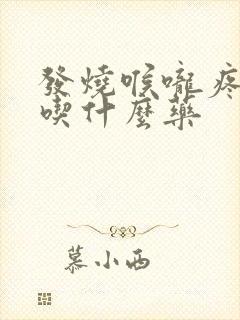 發燒喉嚨疼
喫什麼藥
慕小西